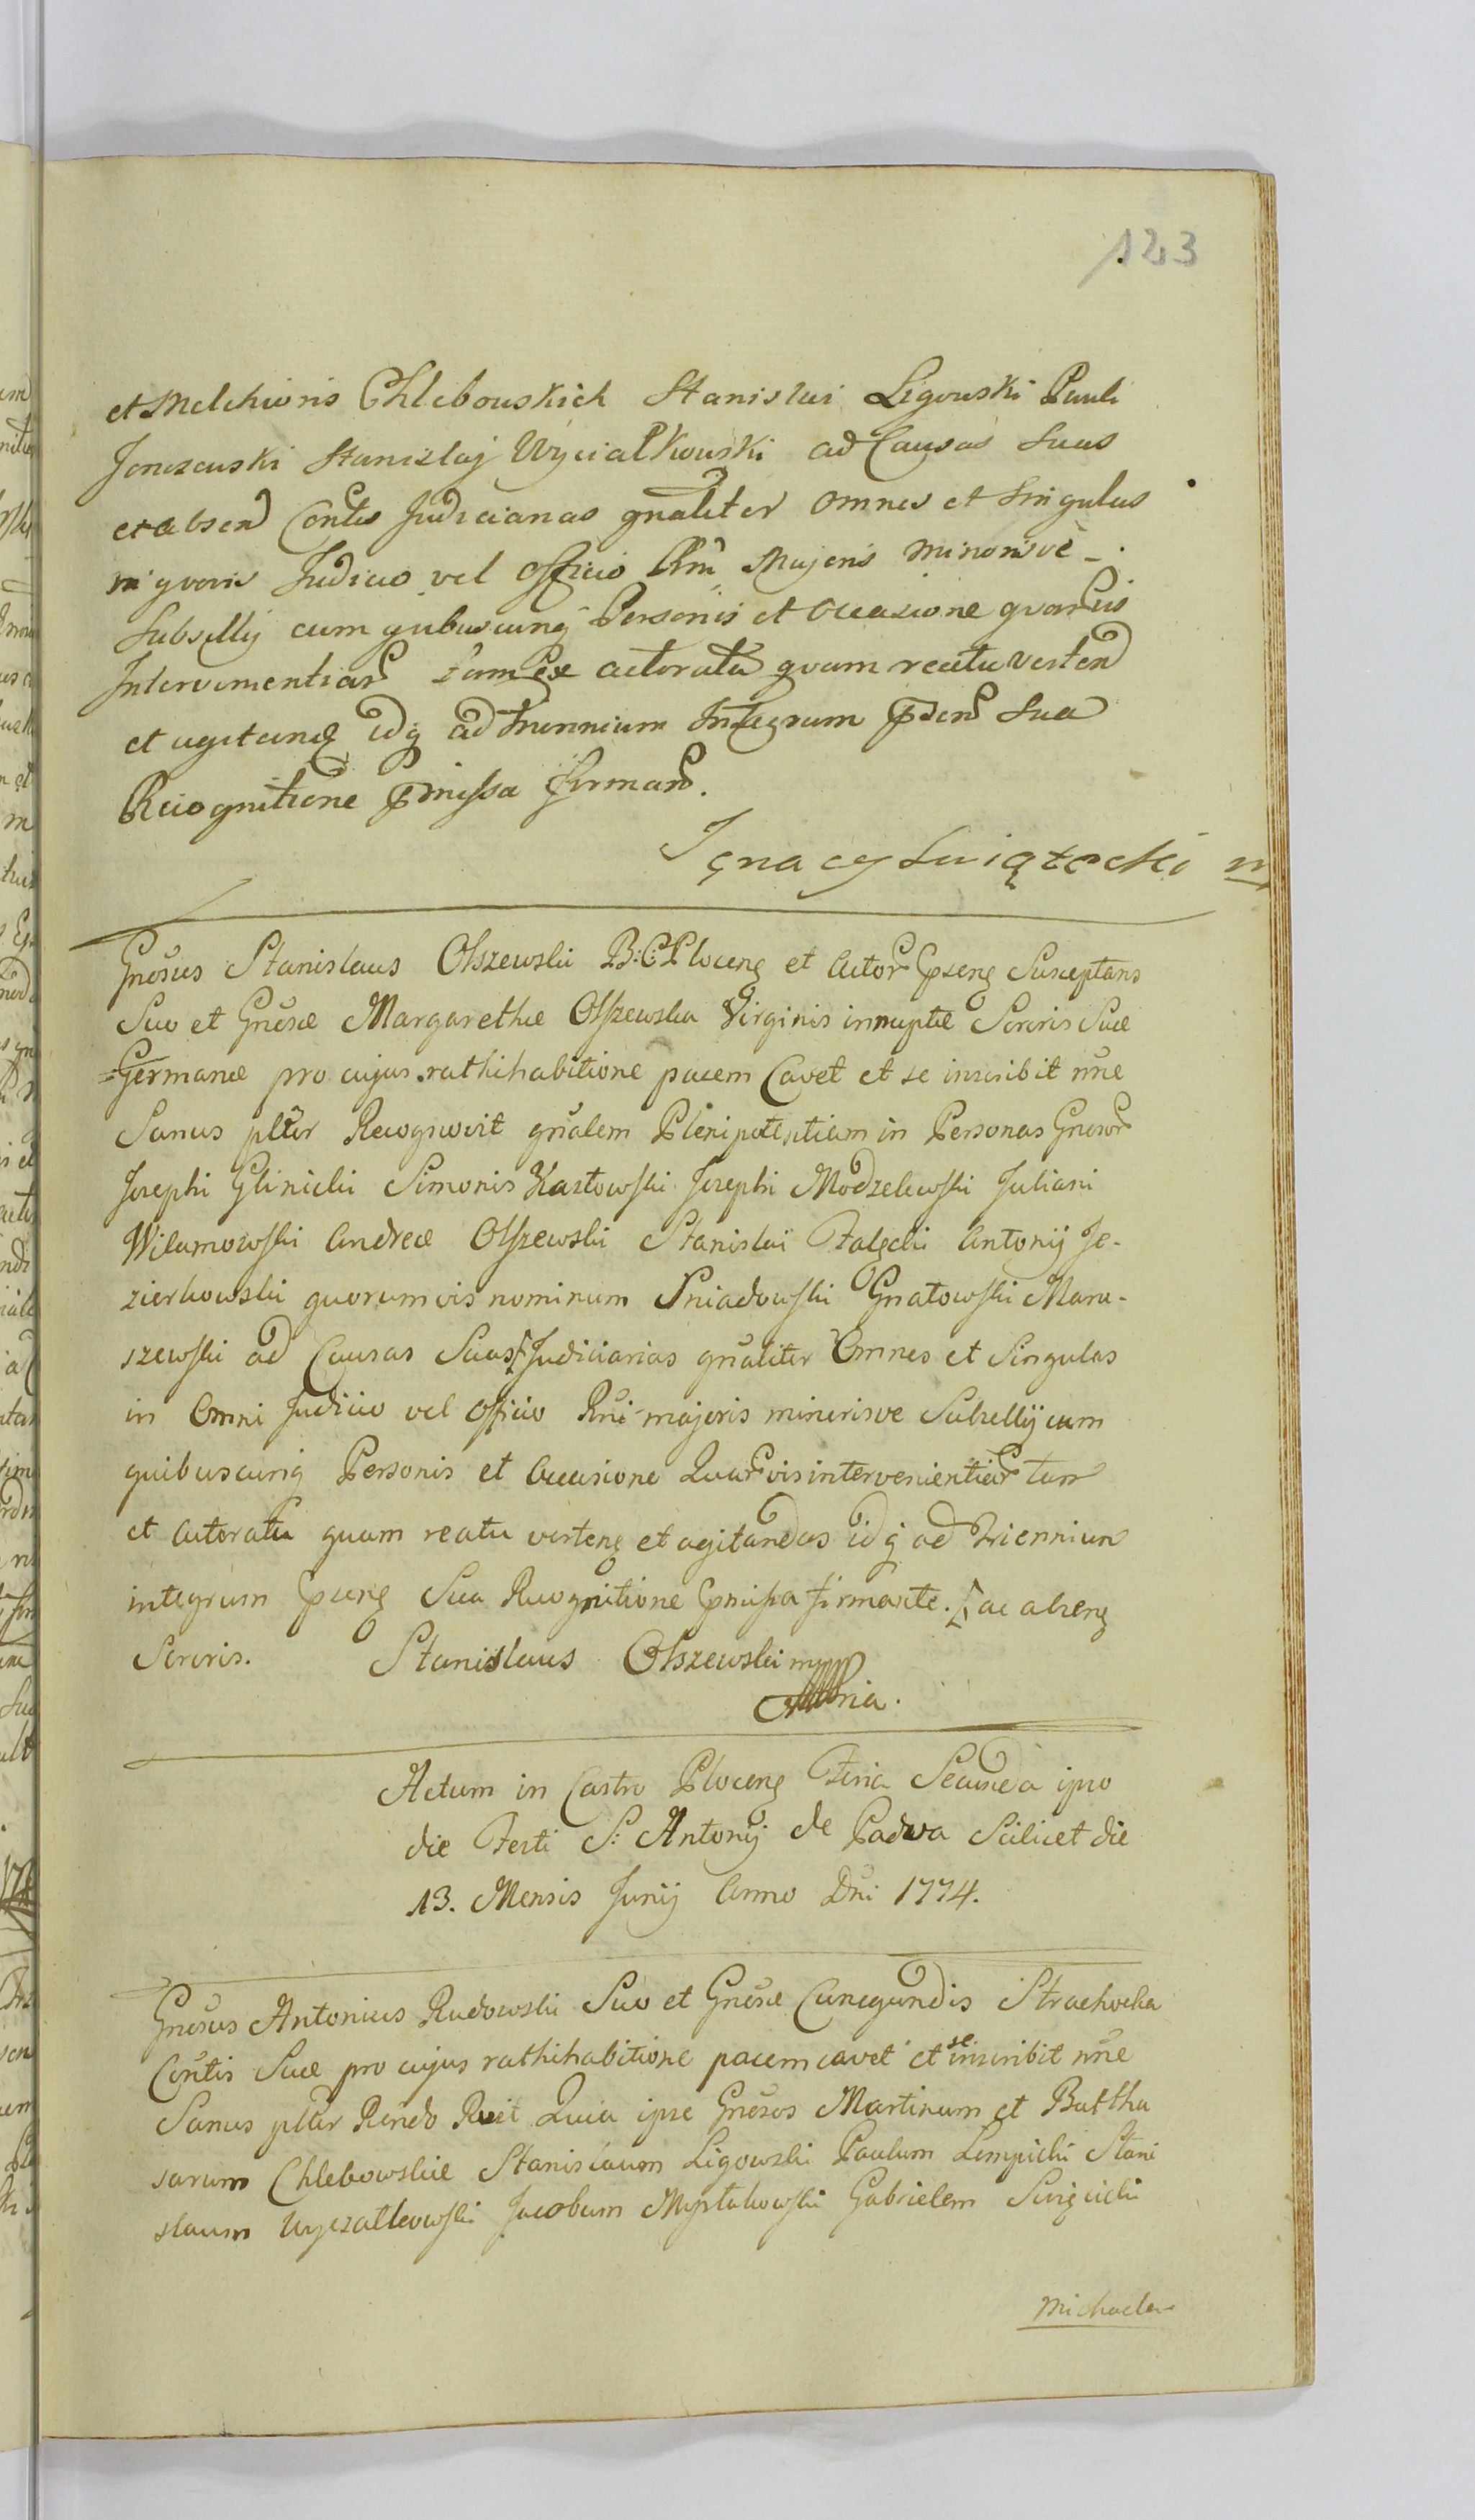 123
et Melchioris Chlebouskich Stanislai Ligouski Pauli
Jonczouski Stanizlaj Wycialkowski ad Causas Suas
et absend Contis Judiciarias gnaliter omnes et Singulas
in qvovis Judicio vel officio Rni Majoris minorisve
Subsellij cum quibuscunq Personis et occasione qvarvis
Intervenientiar tam ex actoratu qvam reatu vertend
et agitand idq ad triennium Integrum pden Sua
Recognitione pmissa firman.
Jgnacy Swiątecki m
Gnosus Stanislaus Olszewski B: C: Plocens et Actor psens Susceptans
Suo et Gnosæ Margarethæ Olszewska Virginis innuptæ Sororis Suæ
Germanæ pro cujus rathihabitione pacem Cavet et se inscribit nne
Sanus plter Recognovit gnalem Plenipotentiam in Personas Gnosor
Josephi Glinicki Simonis Karłowski Josephi Modzelewski Juliani
Wilamowski Andreæ Olszewski Stanislai Załęcki Antonij Je-
zierkowski quorumvis nominum Sniadowski Gnatowski Maru-
szewski ad Causas Suas Judiciarias gnaliter Omnes et Singulas
in Omni Judicio vel Officio Rni majoris minorisve Subsellij cum
quibuscunq Personis et Occasione Quarvis intervenientiar tam
et Actoratu quam reatu vertens et agitandas idq ad Triennium
integrum psens Sua Recognitione pmissa firmante. ac absens
Sororis. Stanislaus Olszewski mpp
ria.
Actum in Castro Plocens Feria Secunda ipso
die Festi S: Antonij de Padwa Scilicet die
13. Mensis Junij Anno Dni 1774.
Gnosus Antonius Rudowski Suo et Gnosæ Cunegundis Strachocka
Contis Suæ pro cujus rathihabitione pacem cavet et se inscribit nne
Sanus plter Rendo Rvit Quia ipse Gnosos Martinum et Baltha
sarum Chlebowskie Stanislaum Ligowski Paulum Lempicki Stani
slaum Wyczałkowski Jacobum Mystkowski Gabrielem Swięcicki
Michaelem